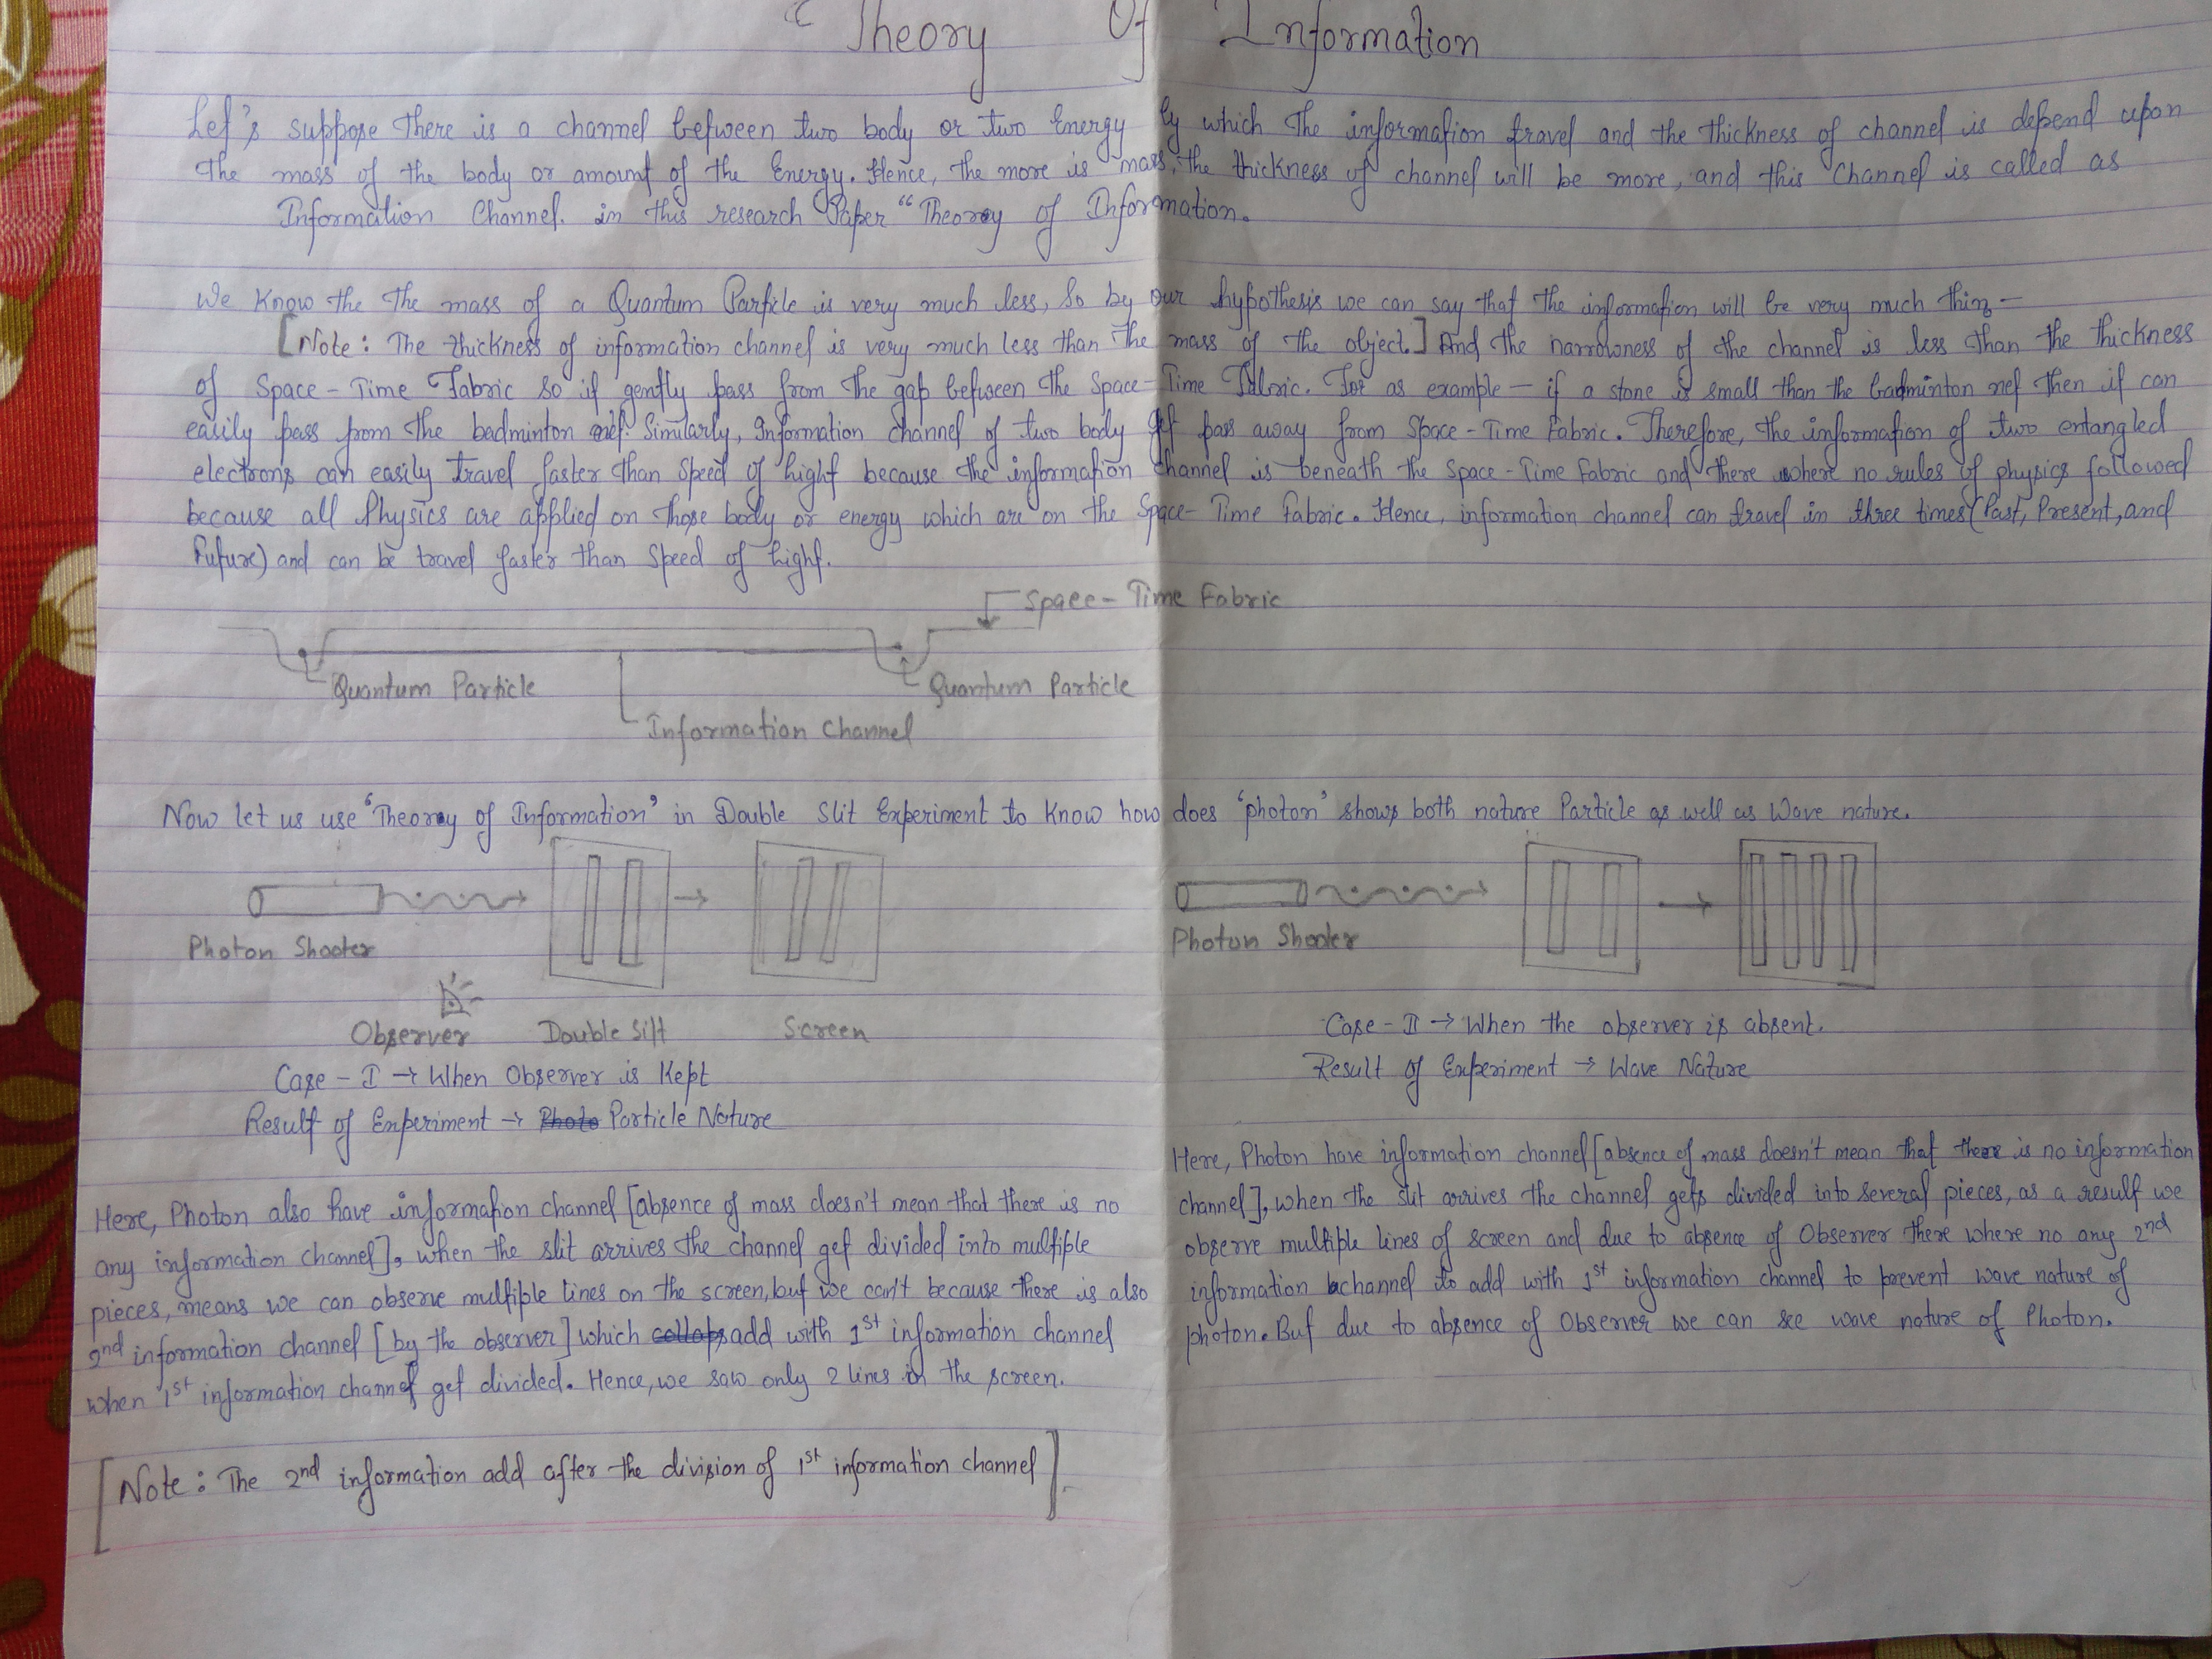 "Theory Of Information
Let's suppose there is a channel between two body or two Energy by which the information travel and the thickness of channel is depend upon
the mass of the body or amount of the Energy. Hence, the more is mass, the thickness of channel will be more, and this Channel is called as
Information Channel. in this research Paper "Theory of Information.
We Know the The mass of a Quantum Particle is very much less, So by our hypothesis we can say that the information will be very much thing -
[Note: The thickness of information channel is very much less than the mass of the object.] And the narrowness of the channel is less than the thickness
of Space-Time Fabric so it gently pass from the gap between the Space-Time Fabric. For as example - if a stone is small than the badminton net then it can
easily pass from the badminton net. Similarly, Information channel of two body get pass away from Space-Time Fabric. Therefore, the information of two entangled
electrons can easily travel faster than speed of light because the information channel is beneath the Space-Time Fabric and there where no rules of physics followed
because all Physics are applied on those body or energy which are on the Space-Time Fabric. Hence, information channel can travel in three times (Past, Present, and
Future) and can be travel faster than Speed of Light.
Space-Time Fabric
Quantum Particle
Quantum Particle
Information Channel
Now let us use 'Theory of Information' in Double Slit Experiment to Know how does 'photon' shows both nature Particle as well as Wave nature.
Photon Shooter
Observer
Double Silt
Screen
Case - I → When Observer is Kept
Result of Experiment → Photo Particle Nature
Here, Photon also have information channel [absence of mass doesn't mean that there is no
any information channel], when the slit arrives the channel get divided into multiple
pieces, means we can observe multiple lines on the screen, but we can't because there is also
2nd information channel [by the observer] which collaps add with 1st information channel
when 1st information channel get divided. Hence, we saw only 2 lines in the screen.
[Note: The 2nd information add after the division of 1st information channel].
Photon Shooter
Case - II → When the observer is absent.
Result of Experiment → Wave Nature
Here, Photon have information channel [absence of mass doesn't mean that there is no information
channel], when the slit arrives the channel gets divided into several pieces, as a result we
observe multiple lines of screen and due to absence of Observer there where no any 2nd
information channel to add with 1st information channel to prevent wave nature of
photon. But due to absence of Observer we can see wave nature of Photon.